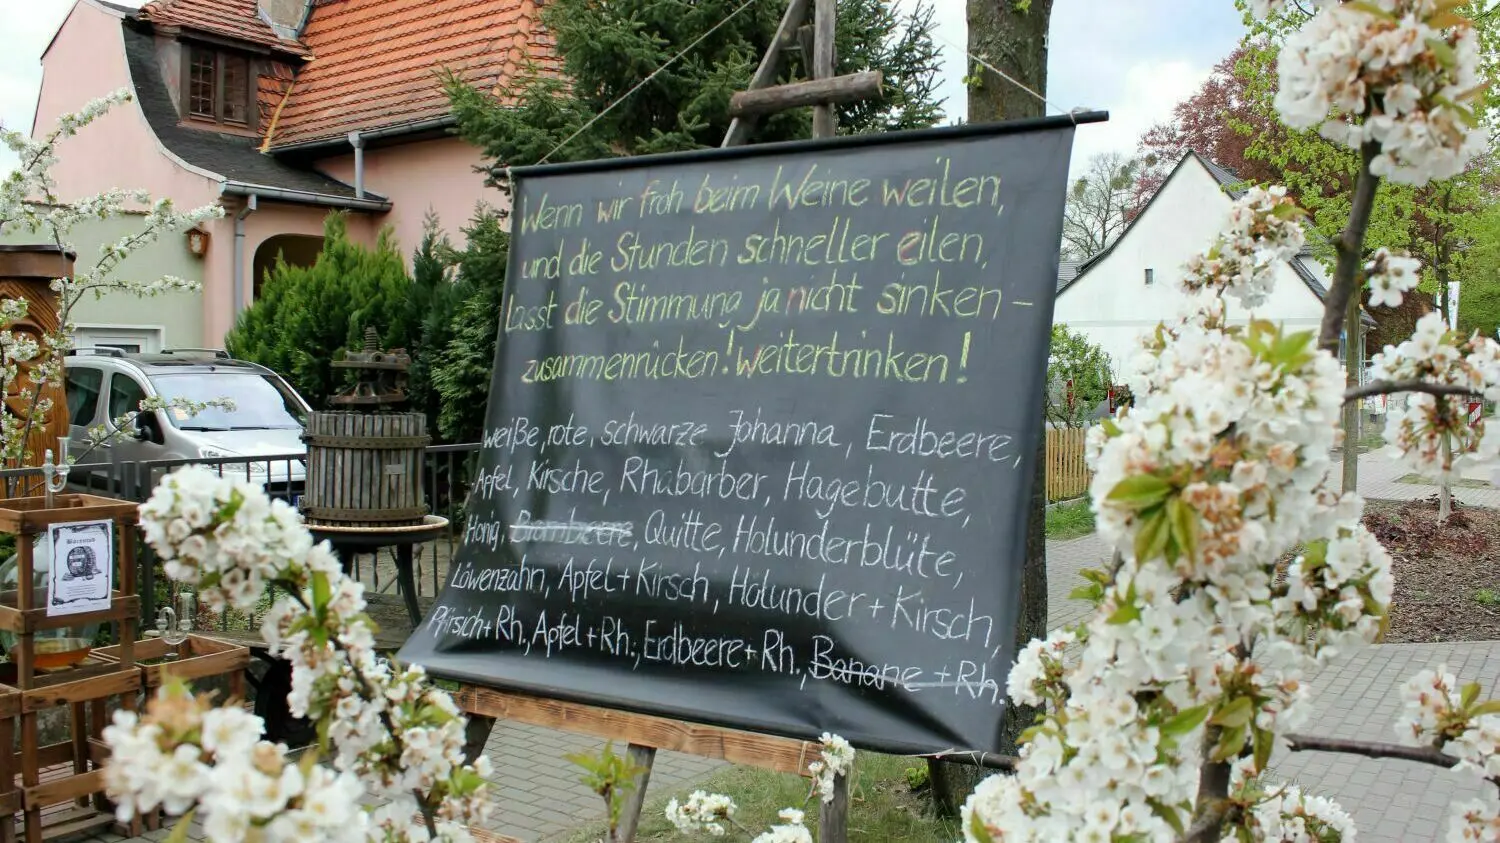 Wenn wir froh beim Weine weilen,
und die Stunden schneller eilen,
Lasst die Stimmung ja nicht sinken –
zusammenrücken! Weitertrinken!
weiße, rote, schwarze Johanna, Erdbeere,
Apfel, Kirsche, Rhabarber, Hagebutte,
Honig, Brombeere, Quitte, Holunderblüte,
Löwenzahn, Apfel + Kirsch, Holunder + Kirsch,
Pfirsich + Rh., Apfel + Rh., Erdbeere + Rh., Banane + Rh.